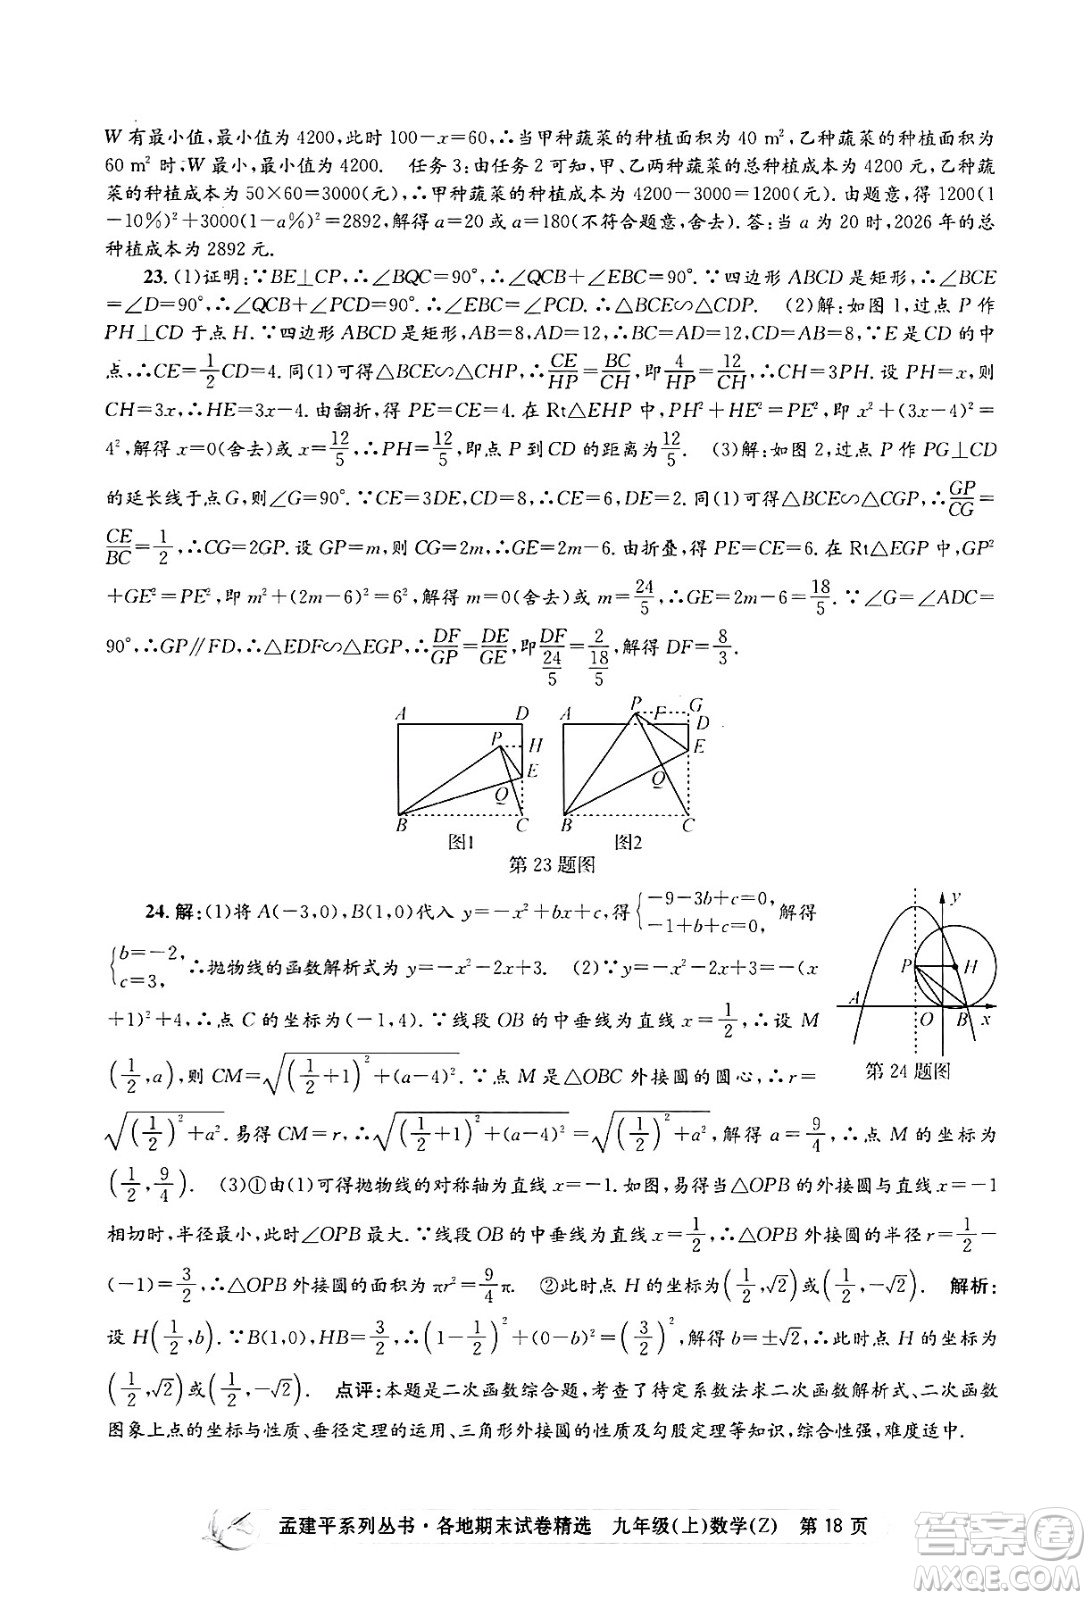 W 有最小值,最小值为 4200,此时 100-x=60,∴当甲种蔬菜的种植面积为 40 m²,乙种蔬菜的种植面积为
60 m² 时,W 最小,最小值为 4200. 任务 3:由任务 2 可知,甲、乙两种蔬菜的总种植成本为 4200 元,乙种蔬
菜的种植成本为 50×60=3000(元),∴甲种蔬菜的种植成本为 4200-3000=1200(元). 由题意,得 1200(1
-10%)²+3000(1-a%)²=2892,解得 a=20 或 a=180(不符合题意,舍去). 答:当 a 为 20 时,2026 年的总
种植成本为 2892 元.
23. (1)证明:∵BE⊥CP,∴∠BQC=90°,∴∠QCB+∠EBC=90°. ∵四边形 ABCD 是矩形,∴∠BCE
=∠D=90°,∴∠QCB+∠PCD=90°,∴∠EBC=∠PCD. ∴△BCE∽△CDP. (2)解:如图 1,过点 P 作
PH⊥CD 于点 H. ∵四边形 ABCD 是矩形,AB=8,AD=12,∴BC=AD=12,CD=AB=8,∵E 是CD 的中
点,∴CE=1/2CD=4. 同(1)可得△BCE∽△CHP,∴CE/HP=BC/CH,即4/HP=12/CH,∴CH=3PH. 设 PH=x,则
CH=3x,∴HE=3x-4. 由翻折,得 PE=CE=4. 在 Rt△EHP 中,PH²+HE²=PE²,即 x²+(3x-4)²=
4²,解得 x=0(舍去)或 x=12/5,∴PH=12/5,即点 P 到 CD 的距离为12/5. (3)解:如图 2,过点 P 作 PG⊥CD
的延长线于点 G,则∠G=90°. ∵CE=3DE,CD=8,∴CE=6,DE=2. 同(1)可得△BCE∽△CGP,∴GP/CG=
CE/BC=1/2,∴CG=2GP. 设 GP=m,则 CG=2m,∴GE=2m-6. 由折叠,得 PE=CE=6. 在 Rt△EGP 中,GP²
+GE²=PE²,即 m²+(2m-6)²=6²,解得 m=0(舍去)或 m=24/5,∴GE=2m-6=18/5. ∵∠G=∠ADC=
90°,∴GP∥FD,∴△EDF∽△EGP,∴DF/GP=DE/GE,即DF/(24/5)=2/(18/5),解得 DF=8/3.
A D P H E Q B C
A P F G D E Q B C
图1 图2
第 23 题图
24. 解:(1)将 A(-3,0),B(1,0)代入 y=-x²+bx+c,得{-9-3b+c=0, -1+b+c=0, 解得
{b=-2, c=3, ∴抛物线的函数解析式为 y=-x²-2x+3. (2)∵y=-x²-2x+3=-(x
+1)²+4,∴点 C 的坐标为(-1,4). ∵线段 OB 的中垂线为直线 x=1/2,∴设 M
(1/2,a),则 CM=√((1/2+1)²+(a-4)²). ∵点 M 是△OBC 外接圆的圆心,∴r=
√((1/2)²+a²). 易得 CM=r,∴√((1/2+1)²+(a-4)²)=√((1/2)²+a²),解得 a=9/4,∴点 M 的坐标为
(1/2,9/4). (3)①由(1)可得抛物线的对称轴为直线 x=-1. 如图,易得当△OPB 的外接圆与直线 x=-1
相切时,半径最小,此时∠OPB 最大. ∵线段 OB 的中垂线为直线 x=1/2,∴△OPB 外接圆的半径 r=1/2-
(-1)=3/2,∴△OPB 外接圆的面积为 πr²=9/4π. ②此时点 H 的坐标为(1/2,√2)或(1/2,-√2). 解析:
设 H(1/2,b). ∵B(1,0),HB=3/2,∴(1-1/2)²+(0-b)²=(3/2)²,解得 b=±√2,∴此时点 H 的坐标为
(1/2,√2)或(1/2,-√2). 点评:本题是二次函数综合题,考查了待定系数法求二次函数解析式、二次函数
图象上点的坐标与性质、垂径定理的运用、三角形外接圆的性质及勾股定理等知识,综合性强,难度适中.
y P H A O B x
第 24 题图
孟建平系列丛书·各地期末试卷精选 九年级(上)数学(Z) 第 18 页
答案圈
MXQE.COM